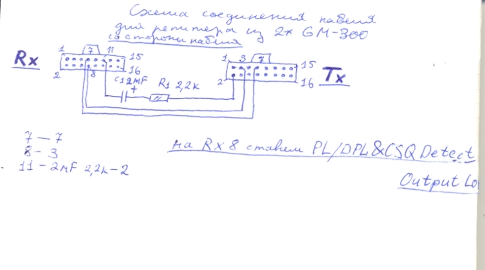 Схема соединения кабеля
для репитера из 2х GM-300
со стороны кабеля
Rx
1 7 11
15
2 8 16
C1 2мF
+
R1 2,2к
1 3 7
15
2 16
Tx
7 — 7
8 - 3
11 - 2мF 2,2к - 2
на Rx 8 ставим PL/DPL&CSQ Detect
Output Lo